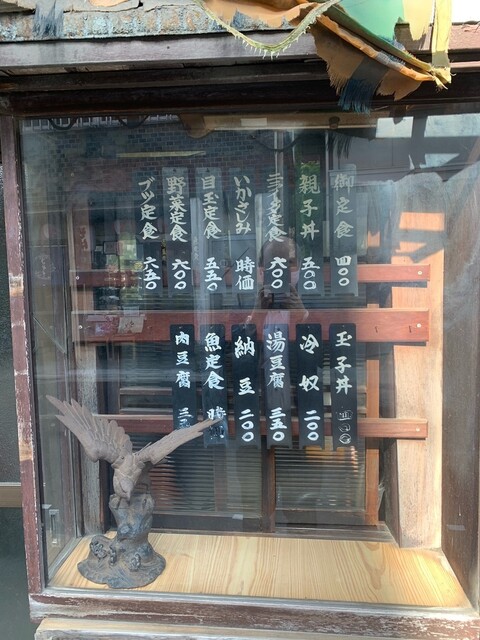 御定食 四〇〇
親子丼 五〇〇
ニラ玉定食 六〇〇
いかさしみ 時価
目玉定食 五五〇
野菜定食 六〇〇
ブツ定食 六五〇
玉子丼 四〇〇
冷奴 二〇〇
湯豆腐 三五〇
納豆 二〇〇
魚定食 時価
肉豆腐